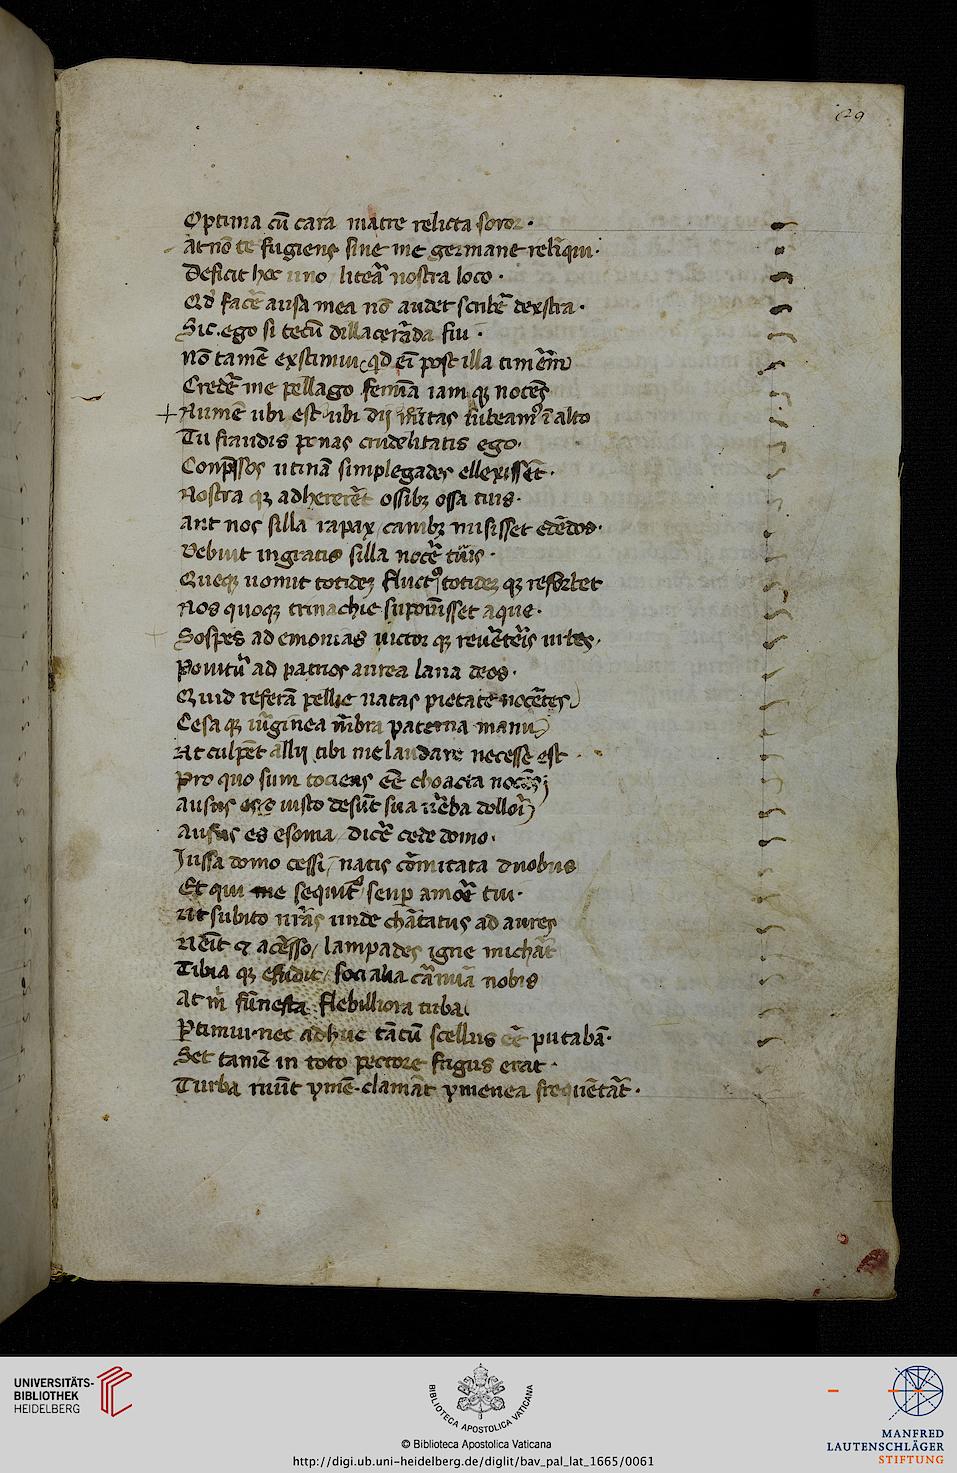 29
Optima cũ cara matre relicta soror·
At nõ te fugiens sine me germane reliqui·
Deficit hoc uno litẽa nostra loco·
Qd facẽ ausa mea nõ audet scribẽ dexstra·
Sic ego si tecũ dillacerãda fui·
Nõ tamẽ exstimui qd eĩ post illa timerẽ
Credẽ me pellago femĩa iam qꝫ nocẽs
Numẽ ubi est ubi dij ĩ alto
Tu fraudis penas crudelitatis ego·
Conp̃ssos utinã simplegades ellexissẽt·
Nostra qꝫ adhererẽt ossibꝫ ossa tuis·
Aut nos silla rapax canibꝫ misisset edẽdos·
Debuit ingratis silla nocẽ
Queqꝫ uomit totideꝫ fluctꝰ totideꝫ qꝫ resorbet
Nos quoqꝫ trinachie suponĩsset aque·
Sospes ad emonias uictor qꝫ urbes·
Ponitũ ad patrios aurea lana deos·
Quid referã pellie natas pietate nocẽtes
Cesa qꝫ uĩginea mẽbra paterna manu
At culpẽt allij tibi me laudare necesse est·
Pro quo sum tociens eẽ choacta nocẽs
Ausus es iusto desũt sua uẽba dollori
Ausus es esonia dicẽ cede domo·
Jussa domo cessi natis cõmitata duobus
Et qui me sequitꝰ senp amoẽ tui·
Ut subito nr̃as unde chãtatus ad aures
Uẽit & acẽsso lampades igne michãt
Tibia qꝫ efudit socialia carmĩa nobis
At m̃ funesta flebilliora tuba
Ptimui nec adhuc tãtũ scellus eẽ putabã·
Set tamẽ in toto pectore frigus erat·
Turba ruũt ymẽ clamãt ymenea frequẽtãt·
UNIVERSITÄTS-
BIBLIOTHEK
HEIDELBERG
BIBLIOTECA APOSTOLICA VATICANA
© Biblioteca Apostolica Vaticana
http://digi.ub.uni-heidelberg.de/diglit/bav_pal_lat_1665/0061
MANFRED
LAUTENSCHLÄGER
STIFTUNG